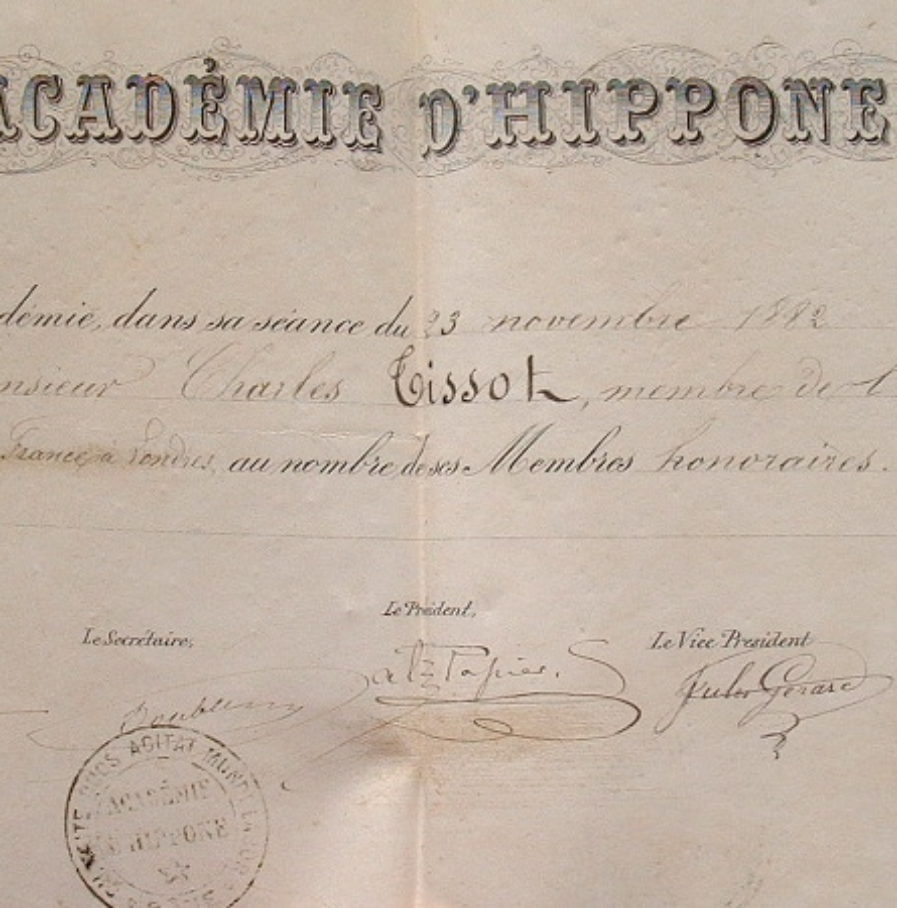 ACADÉMIE D'HIPPONE
démie, dans sa séance du 23 novembre 1882
nsieur Charles Tissot, membre de l'
France à Londres, au nombre de ses Membres honoraires.
Le Président,
Le Secrétaire, Le Vice Président
Papier. Jules Gérard
AGITAT
ACADÉMIE
HIPPONE